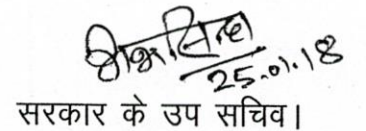 25.01.18
सरकार के उप सचिव।